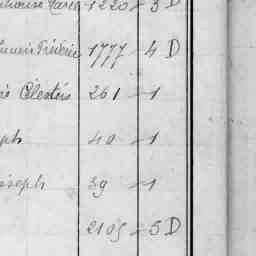 1220 - 3 D
Frédéric 1777 - 4 D
Célestin 261 - 1
ph 40 - 1
oseph 39 - 1
2105 - 5 D